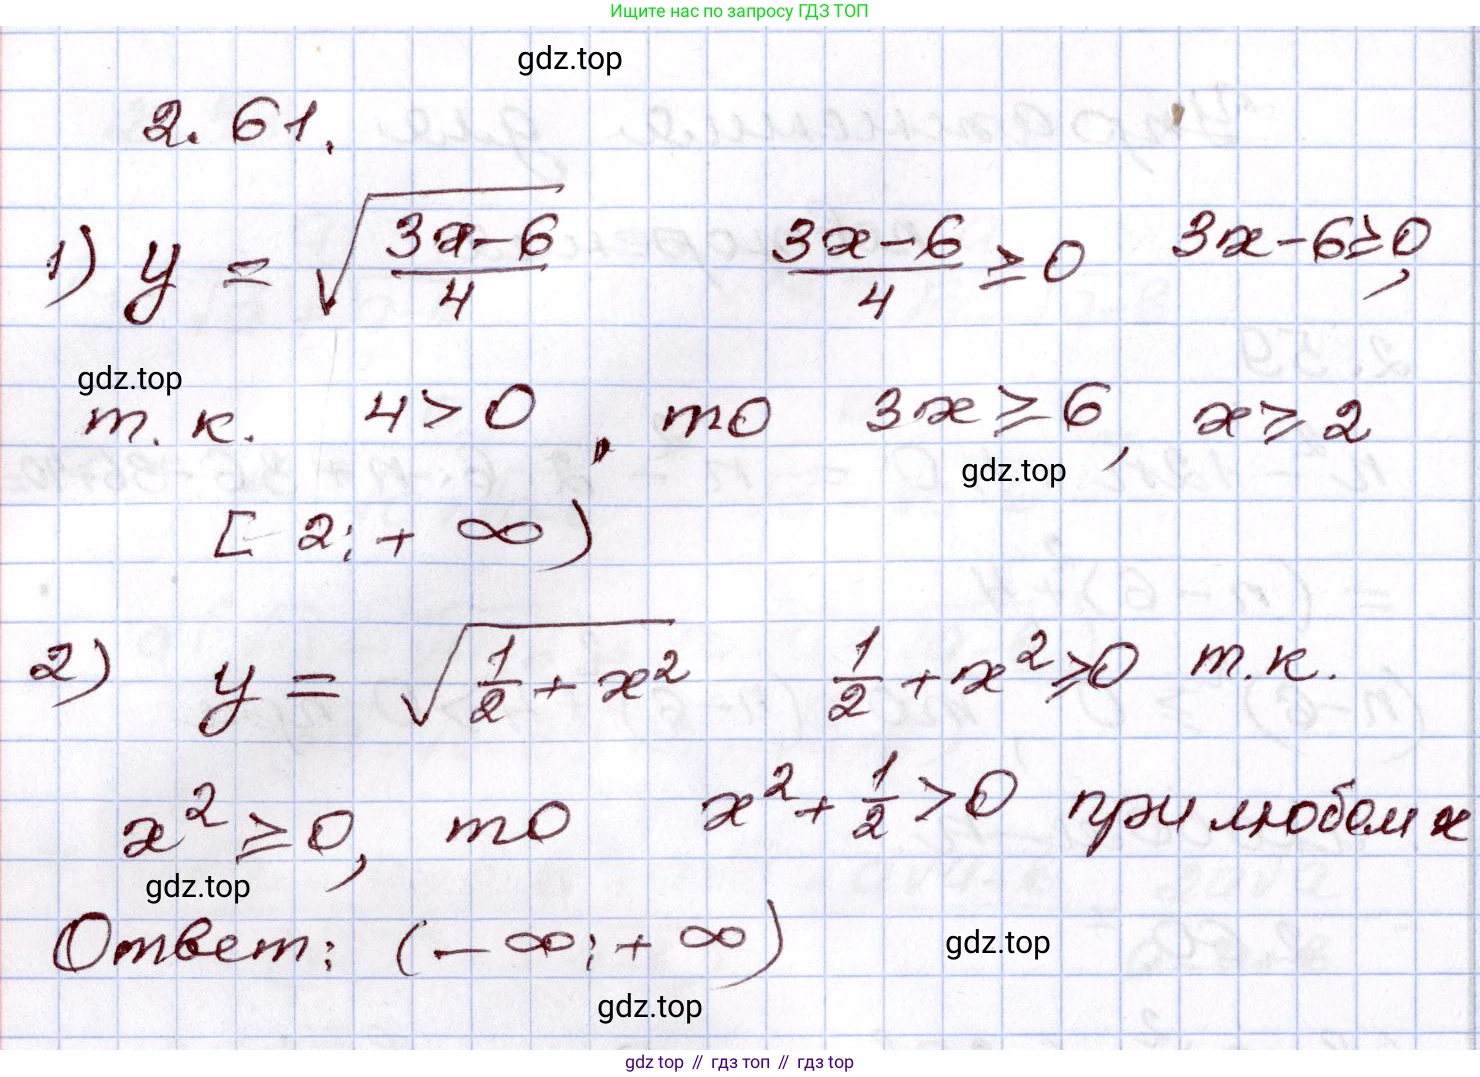 Ищите нас по запросу ГДЗ ТОП
gdz.top
2.61.
1) y = √((3x-6)/4) (3x-6)/4 ≥ 0 3x-6≥0,
gdz.top
т.к. 4>0, то 3x≥6, x≥2
gdz.top
[2;+∞)
2) y = √(1/2+x²) 1/2+x²≥0 т.к.
x²≥0, то x²+1/2>0 при любом x
gdz.top
Ответ: (-∞;+∞)
gdz.top
gdz.top
gdz top // гдз топ // гдз top